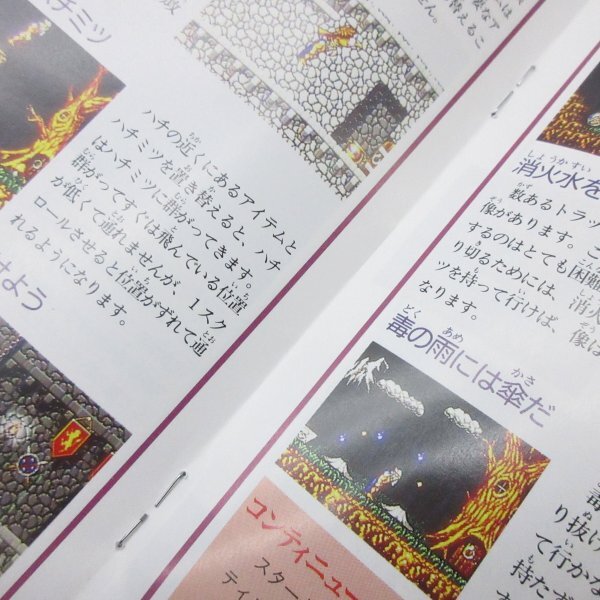 放
替えるこ
ません。
ハチミツ
ハチの近くにあるアイテムと
ハチミツを置き替えると、ハチ
はハチミツに群がってきます。
群がってすぐは飛んでいる位置
が低くて通れませんが、1スク
ロールさせると位置がずれて通
れるようになります。
けよう
消火水を
数あるトラッ
像があります。こ
するのはとても困難
り切るためには、消火
ツを持って行けば、像は
なります。
毒の雨には傘だ
毒
り抜け
て行かな
持たず
コンティニュー
スター
ティ